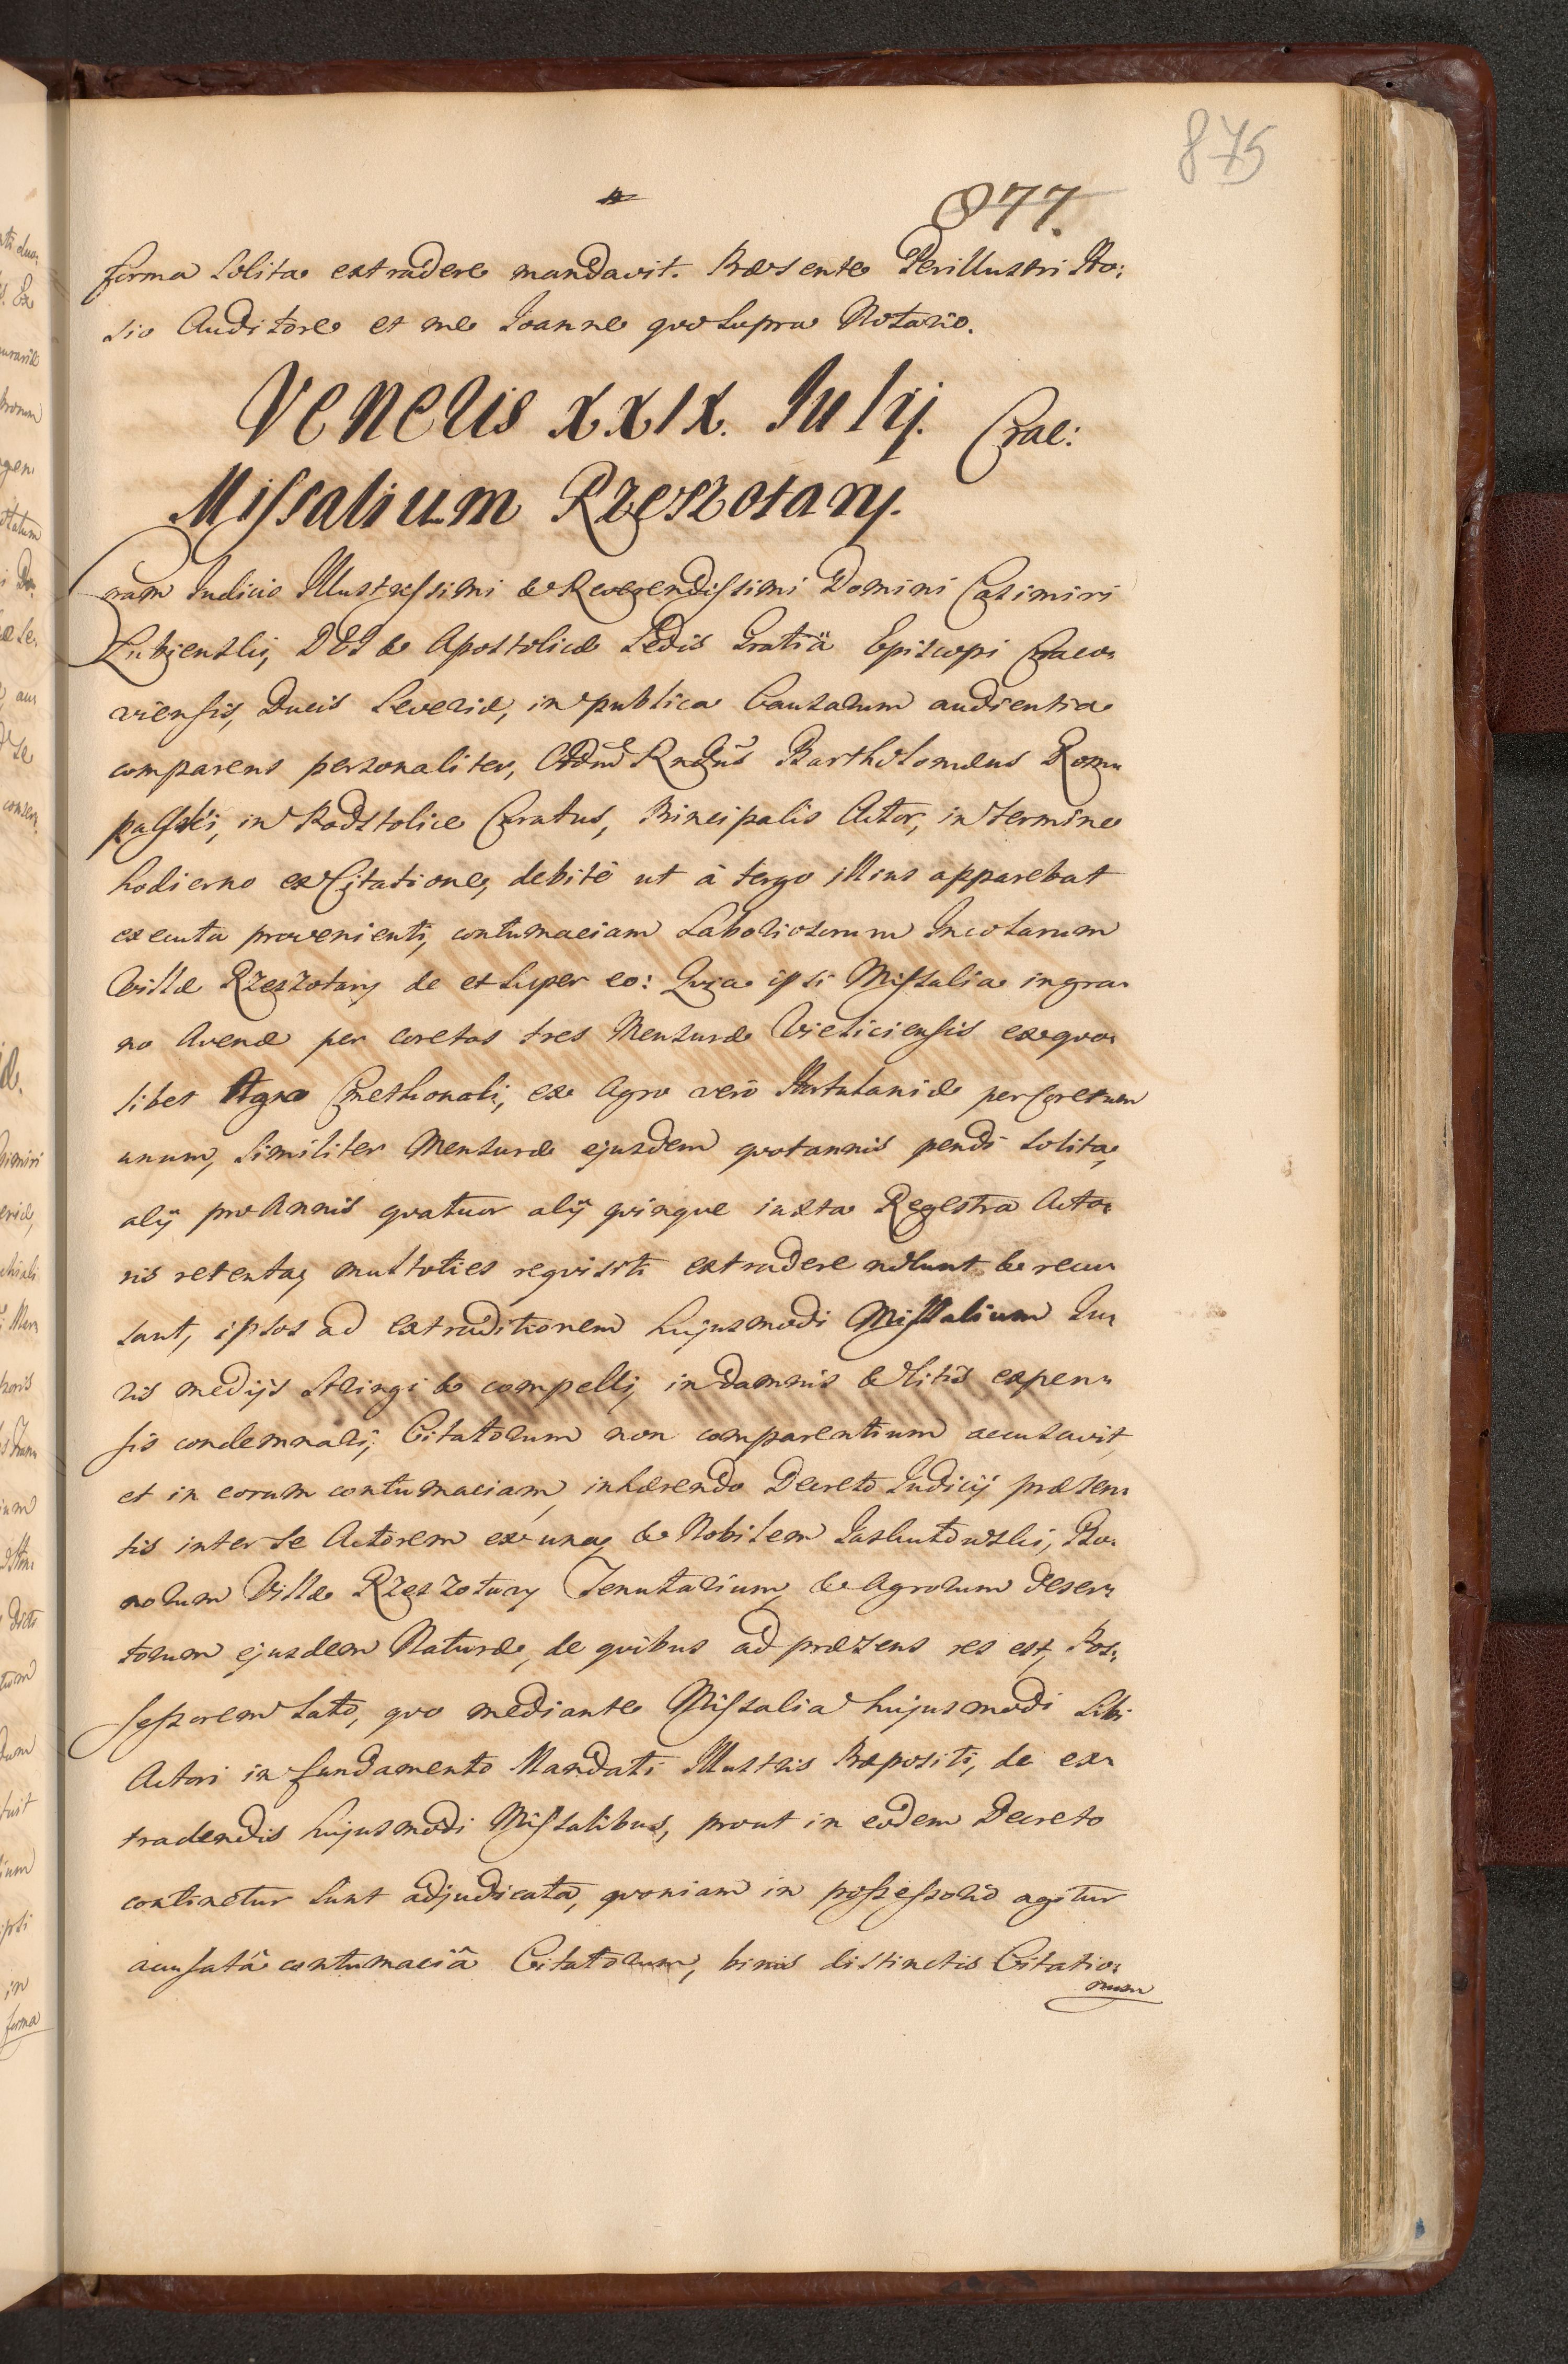 875
877.
forma solita extradere mandavit. Præsente Perillustri Ho:
sio Auditore et me Joanne quo supra Notario.
Veneris XXIX. Julij. Crac:
Missalium Rzeszotary.
Coram Judicio Illustrissimi & Reverendissimi Domini Casimiri
Łubienski, DEI & Apostolicæ Sedis Gratiâ Episcopi Craco:
viensis, Ducis Severiæ, in publica Causarum audientia
comparens personaliter, Adm̃ Rndus Bartholomæus
in Podstolice Curatus, Principalis Actor, in termino
hodierno ex Citatione, debitè ut à tergo illius apparebat
executa provenienti, contumaciam Laboriosorum Incolarum
Villæ Rzeszotary de et super eo: Quia ipsi Missalia in gra:
no Avenæ per coretos tres Mensuræ Vieliciensis ex quo:
libet Agro Cmethonali, ex Agro verò Hortulaniæ per Coretum
unum, similiter Mensuræ ejusdem quotannis pendi solita,
alij pro Annis quatuor alij quinque iuxta Regestra Acto:
ris retenta, multoties requisiti extradere nolunt & recu:
sant, ipsos ad extraditionem hujusmodi Missalium Ju:
ris medijs stringi & compelli, in damnis & litis expen:
sis condemnari; Citatorum non comparentium accusavit,
et in eorum contumaciam, inhærendo Decreto Judicij præsen:
tis inter se Actorem ex una, & Nobilem Jaskutowski, Bo:
norum Villæ Rzeszotary Tenutarium, & Agrorum deser:
torum ejusdem Naturæ, de quibus ad præsens res est, Pos:
sessorem lato, quo mediante Missalia hujusmodi sibi
Actori in fundamento Mandati Illustris Præpositi, de ex:
tradendis hujusmodi Missalibus, prout in eodem Decreto
continetur sunt adjudicata, quoniam in possessorio agitur
accusatâ contumaciâ Citatorum, binis distinctis Citatio:
num